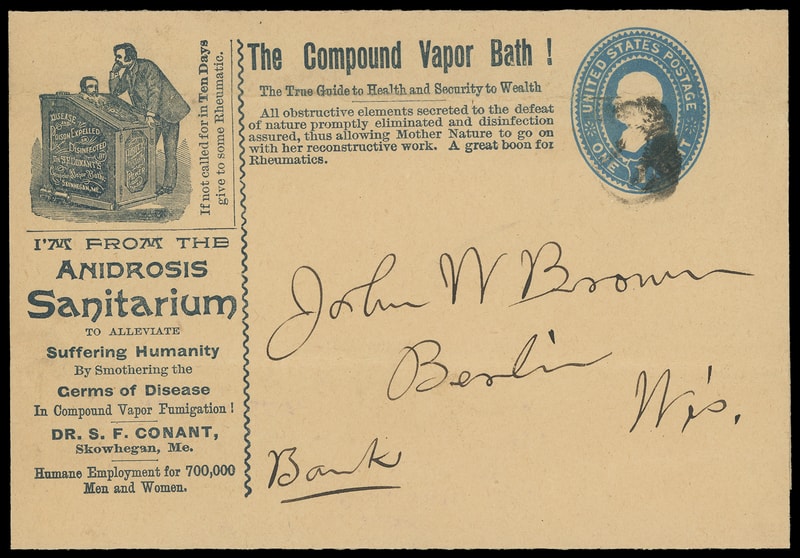 If not called for in Ten Days
give to some Rheumatic.
DISEASE
POISON EXPELLED
DISINFECTED
DR. S. F. CONANT'S
Compound Vapor Bath
SKOWHEGAN, ME.
I'M FROM THE
ANIDROSIS
Sanitarium
TO ALLEVIATE
Suffering Humanity
By Smothering the
Germs of Disease
In Compound Vapor Fumigation!
DR. S. F. CONANT,
Skowhegan, Me.
Humane Employment for 700,000
Men and Women.
The Compound Vapor Bath!
The True Guide to Health and Security to Wealth
All obstructive elements secreted to the defeat
of nature promptly eliminated and disinfection
assured, thus allowing Mother Nature to go on
with her reconstructive work. A great boon for
Rheumatics.
UNITED STATES POSTAGE
ONE
John W Brown
Berlin
Wis.
Bank